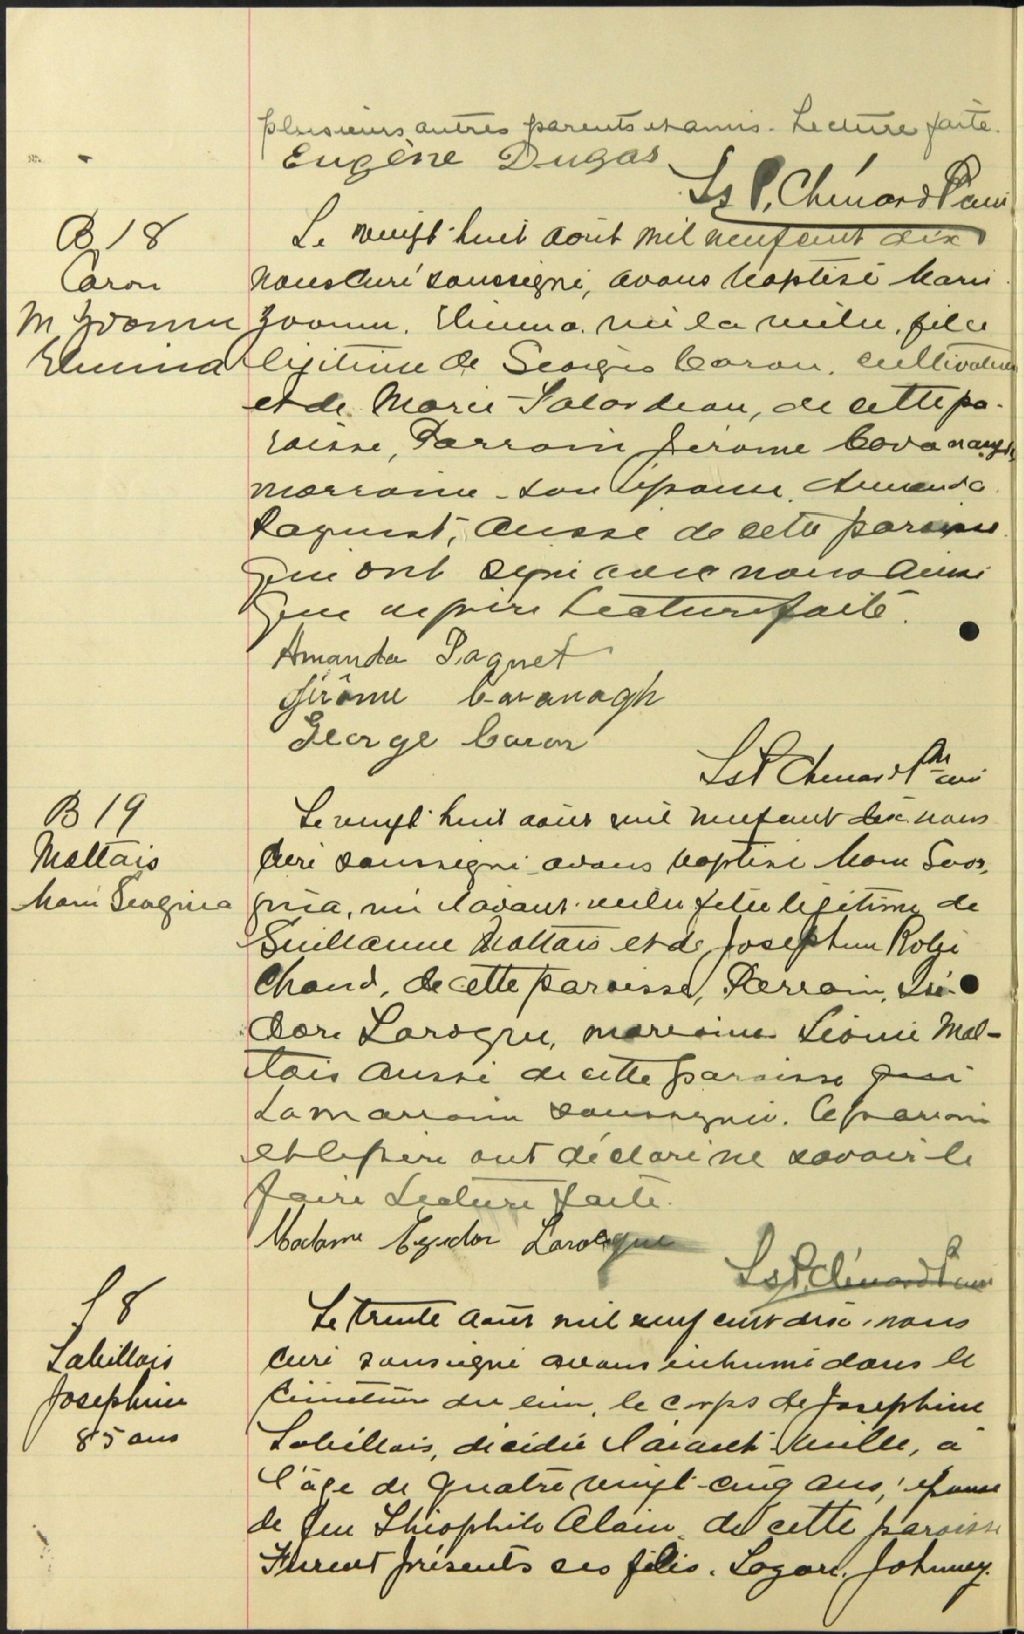 plusieurs autres parents et amis. Lecture faite.
Eugène Dugas
Ls P. Chénard Ptre curé
B 18
Caron
M. Yvonne
Elmina
Le vingt-huit août mil neuf cent dix
nous curé soussigné, avons baptisé Marie
Yvonne, Elmina, née la veille, fille
légitime de Georges Caron, cultivateur
et de Marie Talardeau, de cette pa-
roisse, Parrain Jérome Cavanaugh,
marraine son épouse, Amanda
Paquet, aussi de cette paroisse
qui ont signé avec nous ainsi
que le père Lecture faite.
Amanda Paquet
Jérôme Cavanagh
George Caron
Ls P Chénard Ptre curé
B 19
Maltais
Marie Georgina
Le vingt-huit août mil neuf cent dix nous
curé soussigné avons baptisé Marie Geor-
gina, née l'avant-veille fille légitime de
Guillaume Maltais et de Josephine Robi
chaud, de cette paroisse, Parrain, Isi-
dore Larogue, marraine Léonie Mal-
tais aussi de cette paroisse
La marraine soussignée. Le parrain
et le père ont déclaré ne savoir le
faire Lecture faite.
Madame Larocque
Ls P. Chénard Ptre curé
S 8
Labillois
Josephine
85 ans
Le trente août mil neuf cent dix, nous
curé soussigné avons inhumé dans le
cimetière du lieu, le corps de Josephine
Labillois, décédée l'avant-veille, à
l'âge de quatre vingt-cinq ans, épouse
de feu Théophile Alain, de cette paroisse
Furent présents ses fils. Johnney.